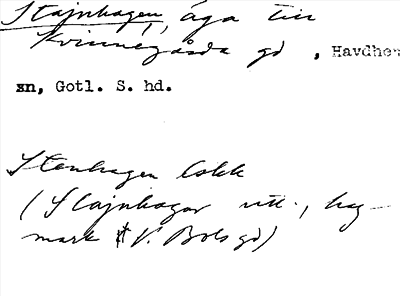 Stajnhagen, äga till
Kvinnegårda gd, Havdhem
sn, Gotl. S. hd.
Stenhagen lokk
(Stajnhagar utt., hag-
mark t V. Bols gd)